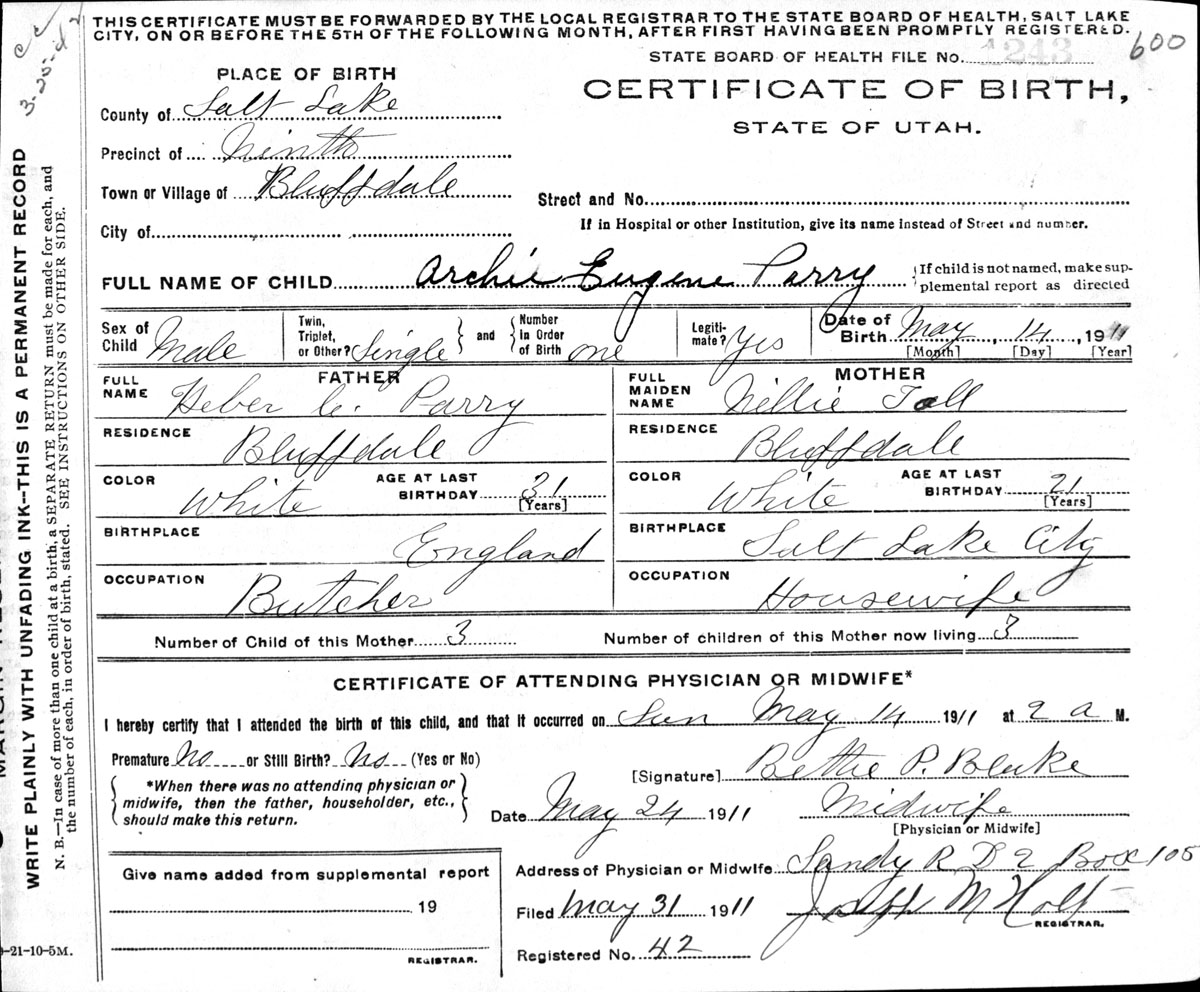 THIS CERTIFICATE MUST BE FORWARDED BY THE LOCAL REGISTRAR TO THE STATE BOARD OF HEALTH, SALT LAKE
CITY, ON OR BEFORE THE 5TH OF THE FOLLOWING MONTH, AFTER FIRST HAVING BEEN PROMPTLY REGISTERED.
600
STATE BOARD OF HEALTH FILE No. 1243
PLACE OF BIRTH
CERTIFICATE OF BIRTH,
STATE OF UTAH.
County of Salt Lake
Precinct of Ninth
Town or Village of Bluffdale
Street and No.
City of
If in Hospital or other Institution, give its name instead of Street and number.
FULL NAME OF CHILD Archie Eugene Parry
If child is not named, make sup-
plemental report as directed
Sex of Child Male Twin, Triplet, or Other? Single and Number In Order of Birth one Legiti-mate? Yes Date of Birth May 14, 1911
[Month] [Day] [Year]
FATHER MOTHER
FULL NAME Heber C. Parry FULL MAIDEN NAME Nillie Tall
RESIDENCE Bluffdale RESIDENCE Bluffdale
COLOR White AGE AT LAST BIRTHDAY 31 [Years] COLOR White AGE AT LAST BIRTHDAY 21 [Years]
BIRTHPLACE England BIRTHPLACE Salt Lake City
OCCUPATION Butcher OCCUPATION Housewife
Number of Child of this Mother 3 Number of children of this Mother now living 3
CERTIFICATE OF ATTENDING PHYSICIAN OR MIDWIFE*
I hereby certify that I attended the birth of this child, and that it occurred on Sun May 14 1911 at 2 a M.
Premature No or Still Birth? No (Yes or No)
[Signature] Bettie P. Blake
*When there was no attending physician or
midwife, then the father, householder, etc.,
should make this return.
Date May 24 1911 Midwife
[Physician or Midwife]
Give name added from supplemental report
19
REGISTRAR.
Address of Physician or Midwife Sandy R D 2 Box 105
Filed May 31 1911 Joseph M Holt
REGISTRAR.
Registered No. 42
WRITE PLAINLY WITH UNFADING INK--THIS IS A PERMANENT RECORD
N. B.—In case of more than one child at a birth, a SEPARATE RETURN must be made for each, and
the number of each, in order of birth, stated. SEE INSTRUCTION ON OTHER SIDE.
-21-10-5M.